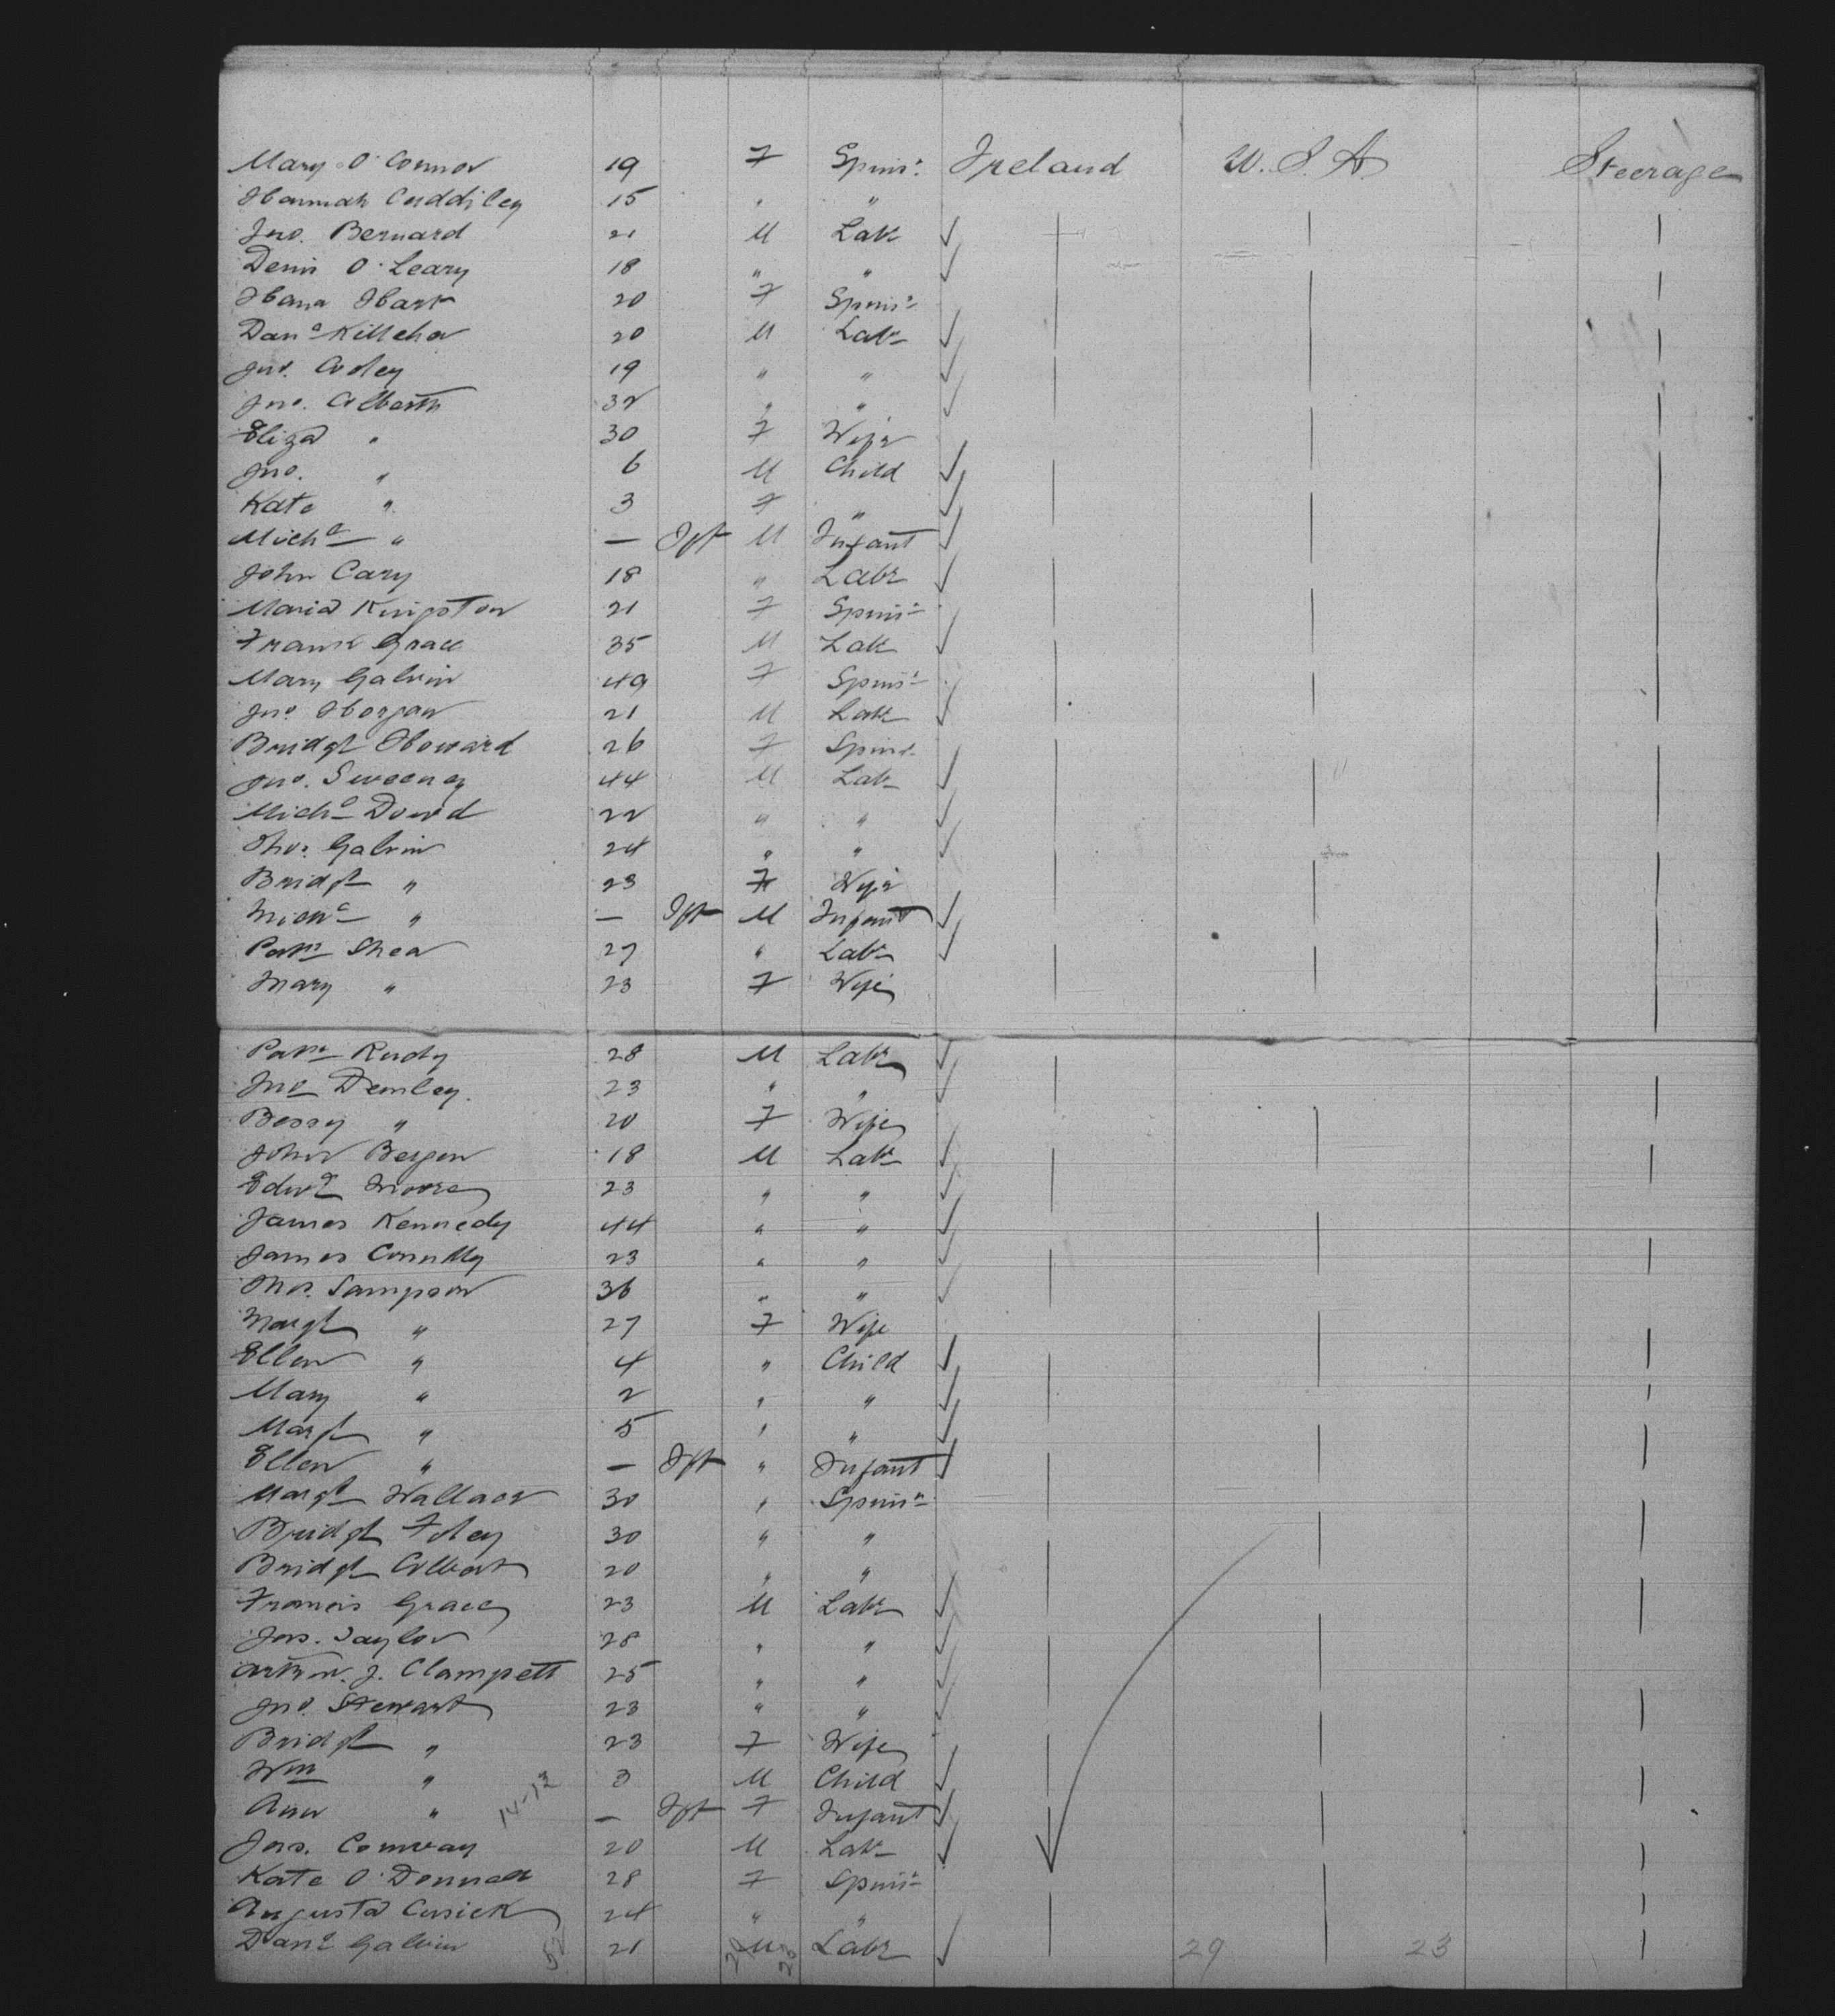 Mary O'Connor 19 F Spins. Ireland U.S.A. Steerage
Hannah Cuddihey 15 " "
Jno. Bernard 21 M Labr
Denis O'Leary 18 " "
Hana Hart 20 F Spins.
Danl Killeher 20 M Labr
Jno. Coley 19 " "
Jno. Colbert 32 " "
Eliza " 30 F Wife
Jno. " 6 M Child
Kate " 3 F "
Michl " — Ift M Infant
John Cary 18 " Labr
Maria Kingston 21 F Spins.
Frank Grace 35 M Labr
Mary Galvin 49 F Spins.
Jno. Horgan 21 M Labr
Bridgt Howard 26 F Spins.
Jno. Sweeney 44 M Labr
Michl Dowd 22 " "
Thos. Galvin 24 " "
Bridgt " 23 F Wife
Michl " — Ift M Infant
Patk Shea 27 " Labr
Mary " 23 F Wife
Patk Rudy 28 M Labr
Jno Denley 23 " "
Bessy " 20 F Wife
John Bergen 18 M Labr
Edwd Moore 23 " "
James Kennedy 44 " "
James Connlly 23 " "
Thos. Sampson 36 " "
Margt " 27 F Wife
Ellen " 4 " Child
Mary " 2 " "
Margt " 5 " "
Ellen " — Ift " Infant
Margt Wallace 30 " Spins.
Bridgt Foley 30 " "
Bridgt Colbert 20 " "
Francis Grace 23 M Labr
Jas. Taylor 28 " "
Arthur J. Clampett 25 " "
Jno. Stewart 23 " "
Bridgt " 23 F Wife
Wm " 3 M Child
Ann " 14-13 — Ift F Infant
Jas. Conway 20 M Labr
Kate O'Donnell 28 F Spins.
Augusta Cusick 24 " "
Danl Galvin 52 21 M Labr 29 23